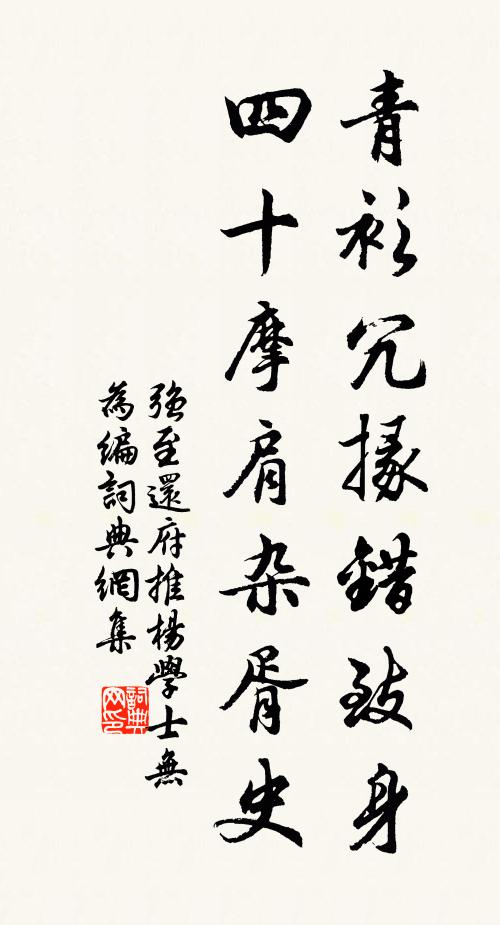 青衫冗掾錯致身
四十摩肩杂胥史
強至還府推楊學士無
為編詞典網集
詞典网印